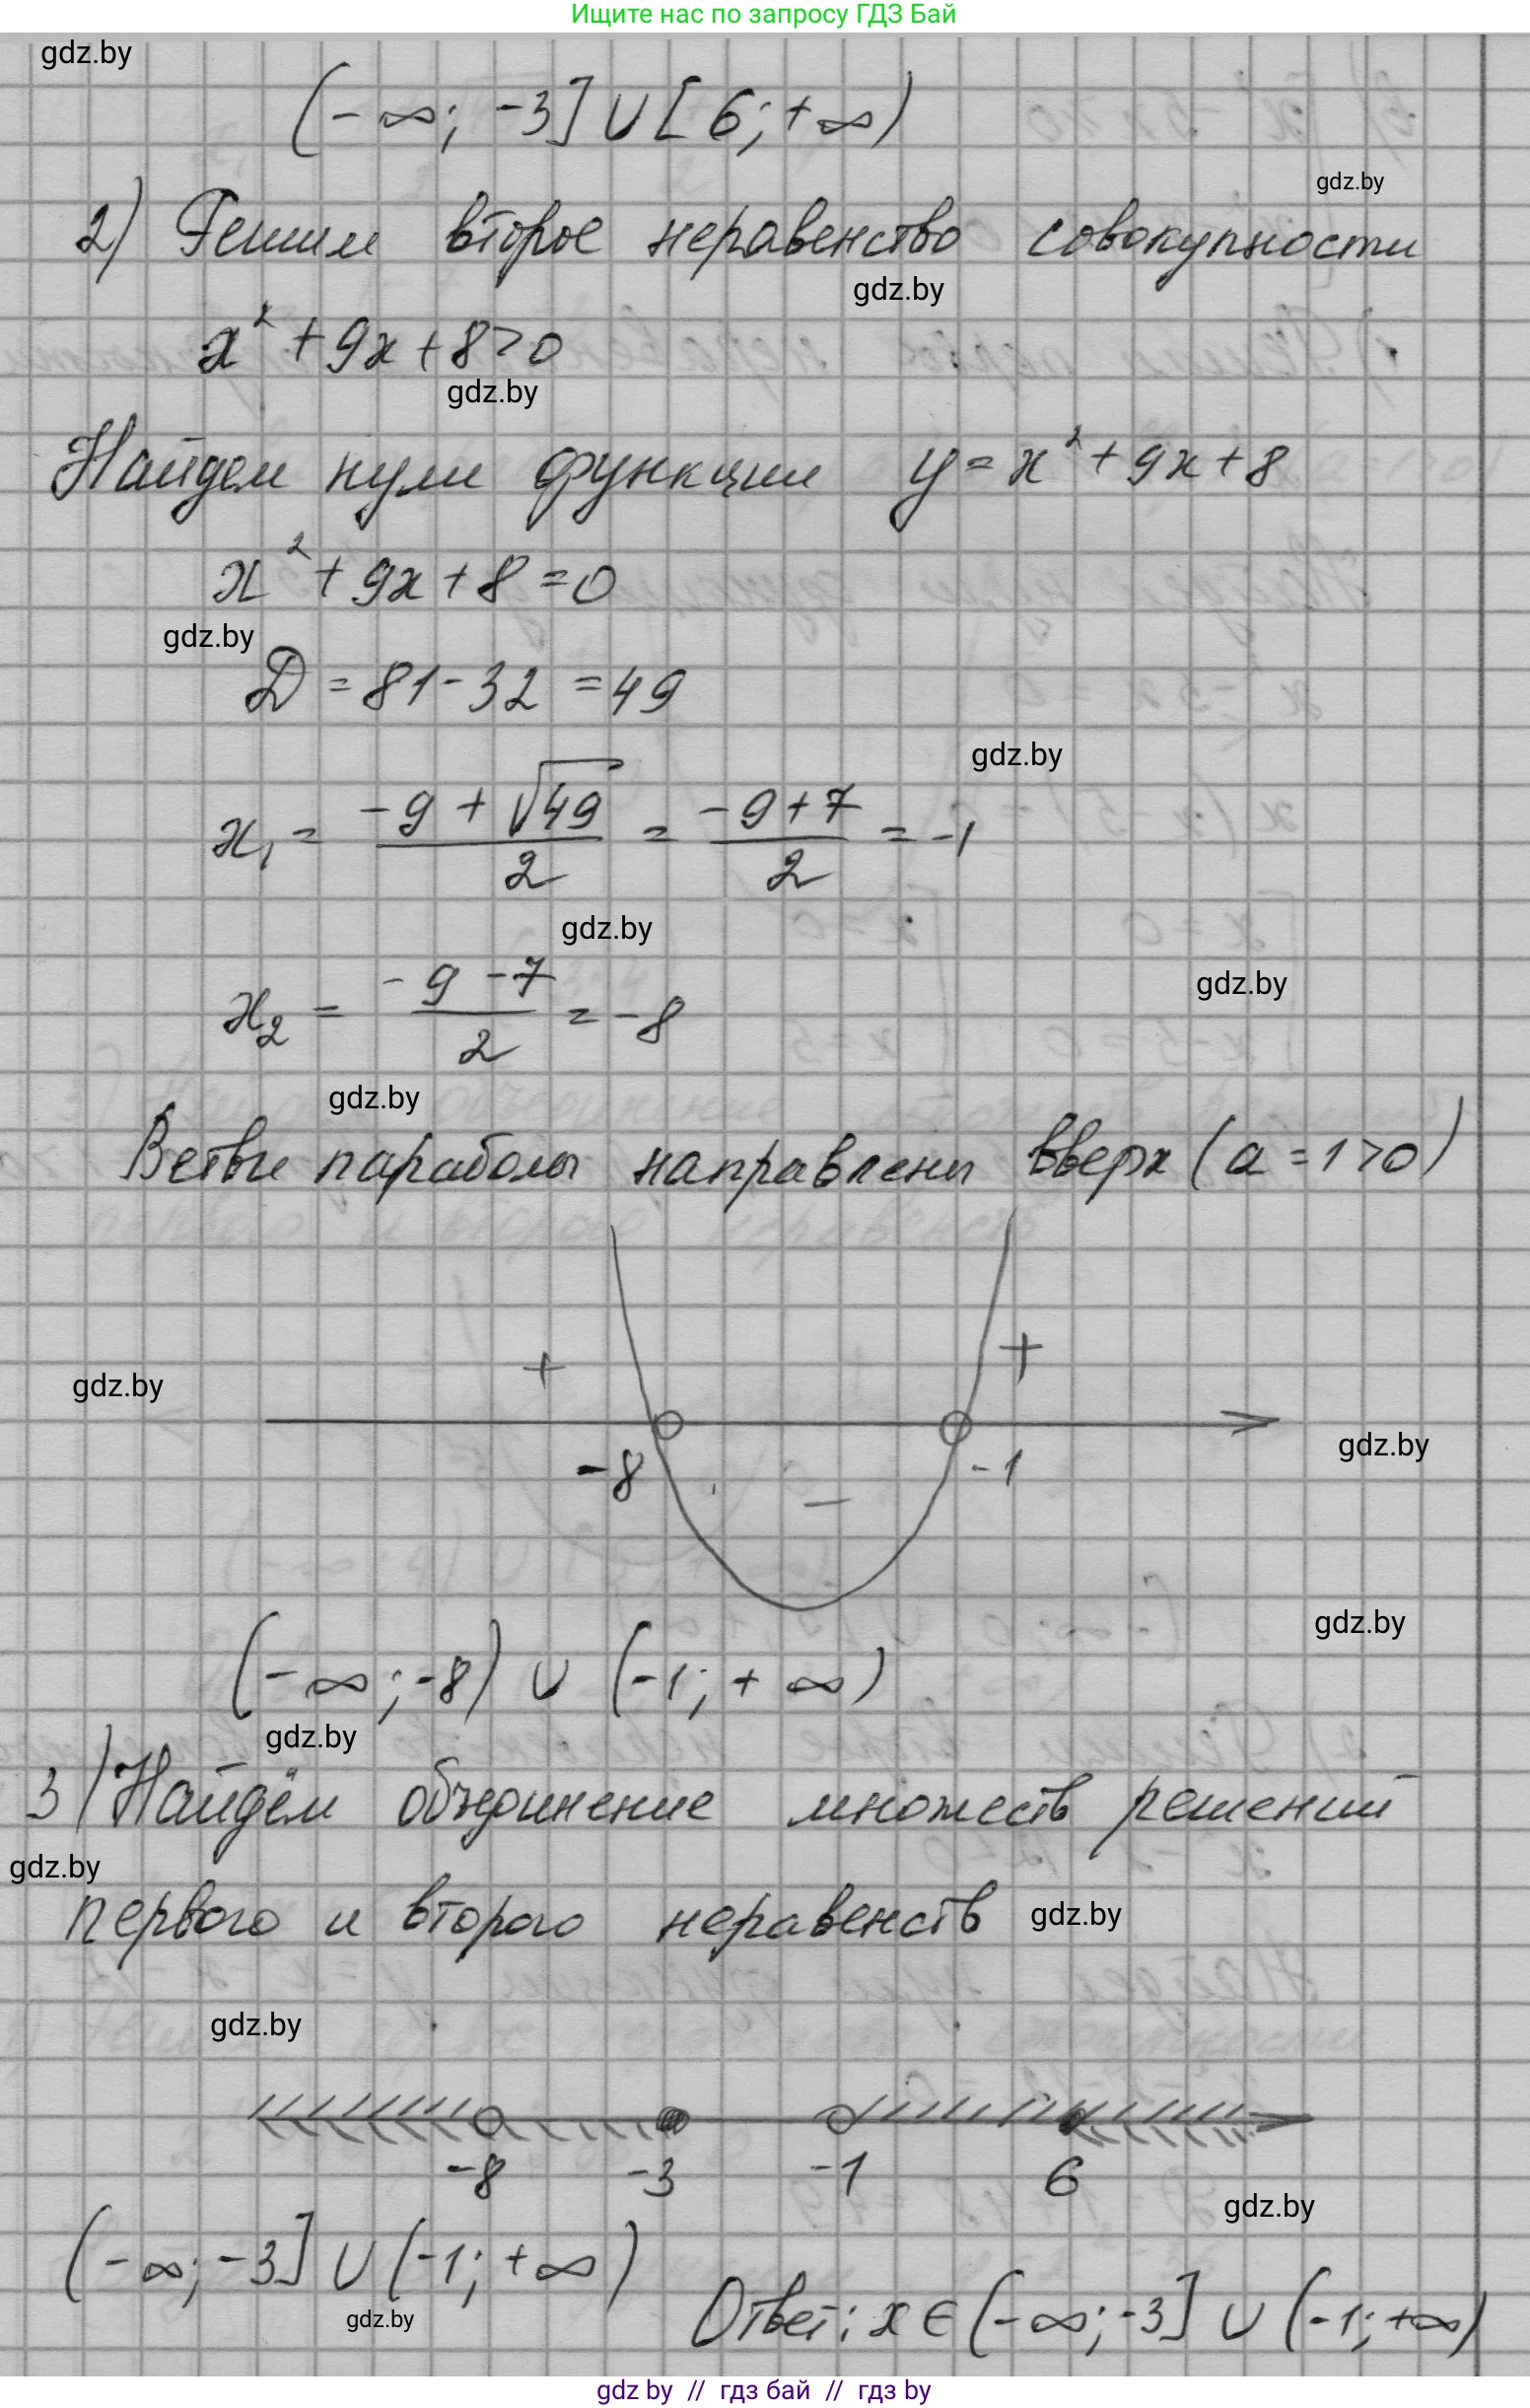 Ищите нас по запросу ГДЗ Бай
gdz.by
(-∞; -3] ∪ [6; +∞)
gdz.by
2) Решим второе неравенство совокупности
gdz.by
x² + 9x + 8 > 0
gdz.by
Найдем нули функции y = x² + 9x + 8
x² + 9x + 8 = 0
gdz.by
D = 81 - 32 = 49
gdz.by
x₁ = (-9 + √49)/2 = (-9 + 7)/2 = -1
gdz.by
gdz.by
x₂ = (-9 - 7)/2 = -8
gdz.by
Ветви параболы направлены вверх (a = 1 > 0)
+ +
gdz.by
gdz.by
-8 - -1
gdz.by
(-∞; -8) ∪ (-1; +∞)
gdz.by
3) Найдём объединение множеств решений
gdz.by
первого и второго неравенств
gdz.by
gdz.by
-8 -3 -1 6
gdz.by
(-∞; -3] ∪ (-1; +∞)
gdz.by
Ответ: x ∈ (-∞; -3] ∪ (-1; +∞)
gdz by // гдз бай // гдз by